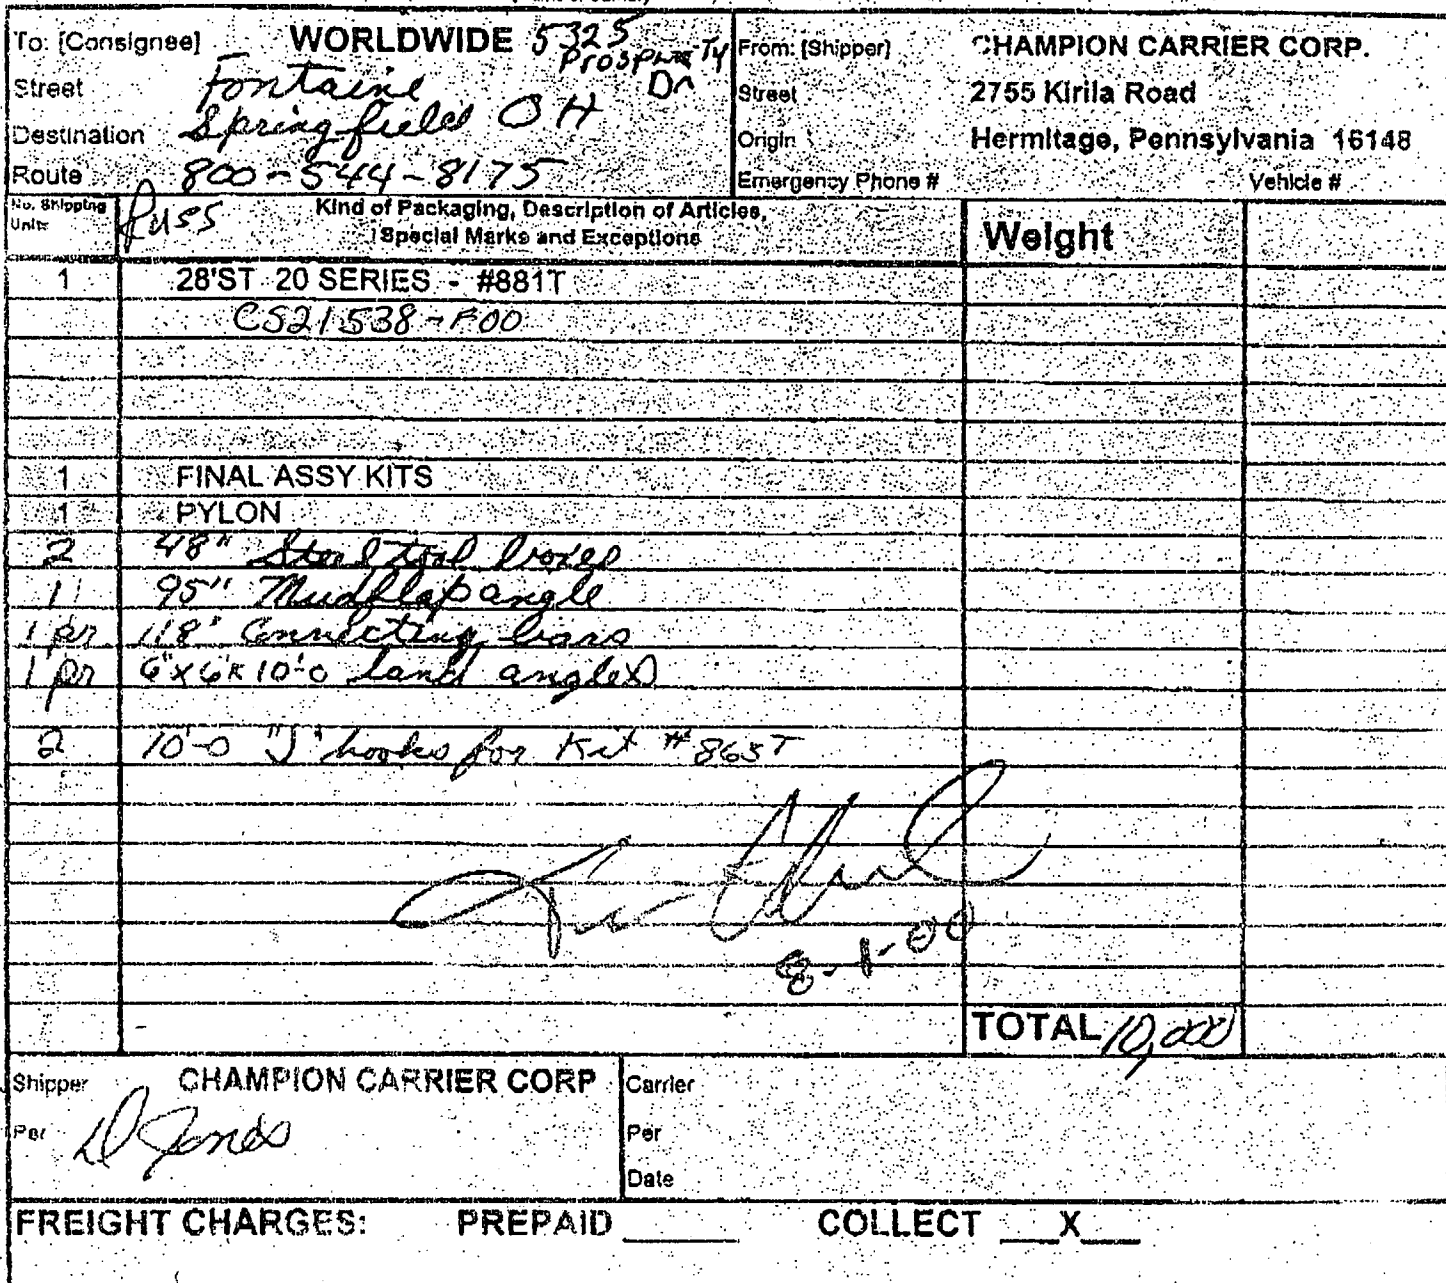 To: [Consignee] WORLDWIDE 5325
Prosperity
Dr
Street Fontaine
Destination Springfield OH
Route 800-544-8175
From: [Shipper] CHAMPION CARRIER CORP.
Street 2755 Kirila Road
Origin Hermitage, Pennsylvania 16148
Emergency Phone # Vehicle #
No. Shipping
Units
Russ
Kind of Packaging, Description of Articles,
Special Marks and Exceptions
Weight
1 28'ST 20 SERIES - #881T
CS21538-F00
1 FINAL ASSY KITS
1 PYLON
2 48" Steel tool boxes
1 95" Mudflap angle
1 pr 118" Connecting bars
1 pr 6"x6"x10'-0 land angles
2 10'-0 "J" hooks for Kit #863T
8-1-00
TOTAL 10,000
Shipper CHAMPION CARRIER CORP
Per D Jones
Carrier
Per
Date
FREIGHT CHARGES: PREPAID ______ COLLECT ___X___